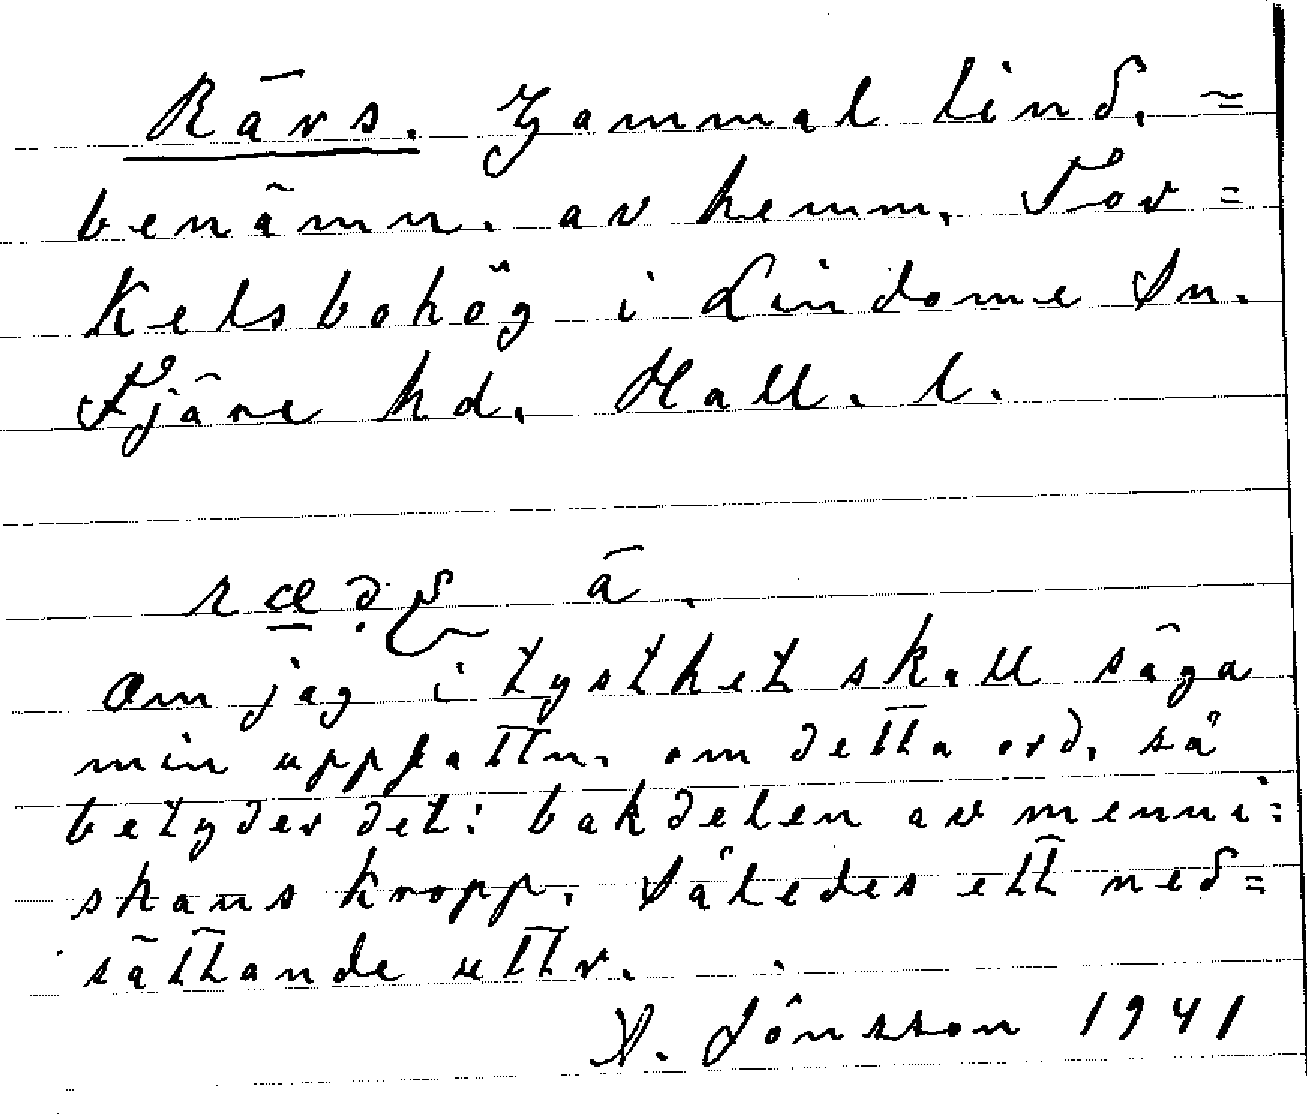 Rävs. Gammal Lind. =
benämn. av hemm. Tor=
kelsbohög i Lindome Sn.
Fjäre hd. Hall. l.
ä.
Om jag i tysthet skall säga
min uppfattn. om detta ord, så
betyder det: bakdelen av menni=
skans kropp. Således ett ned=
sättande uttr.
A. Jönsson 1941